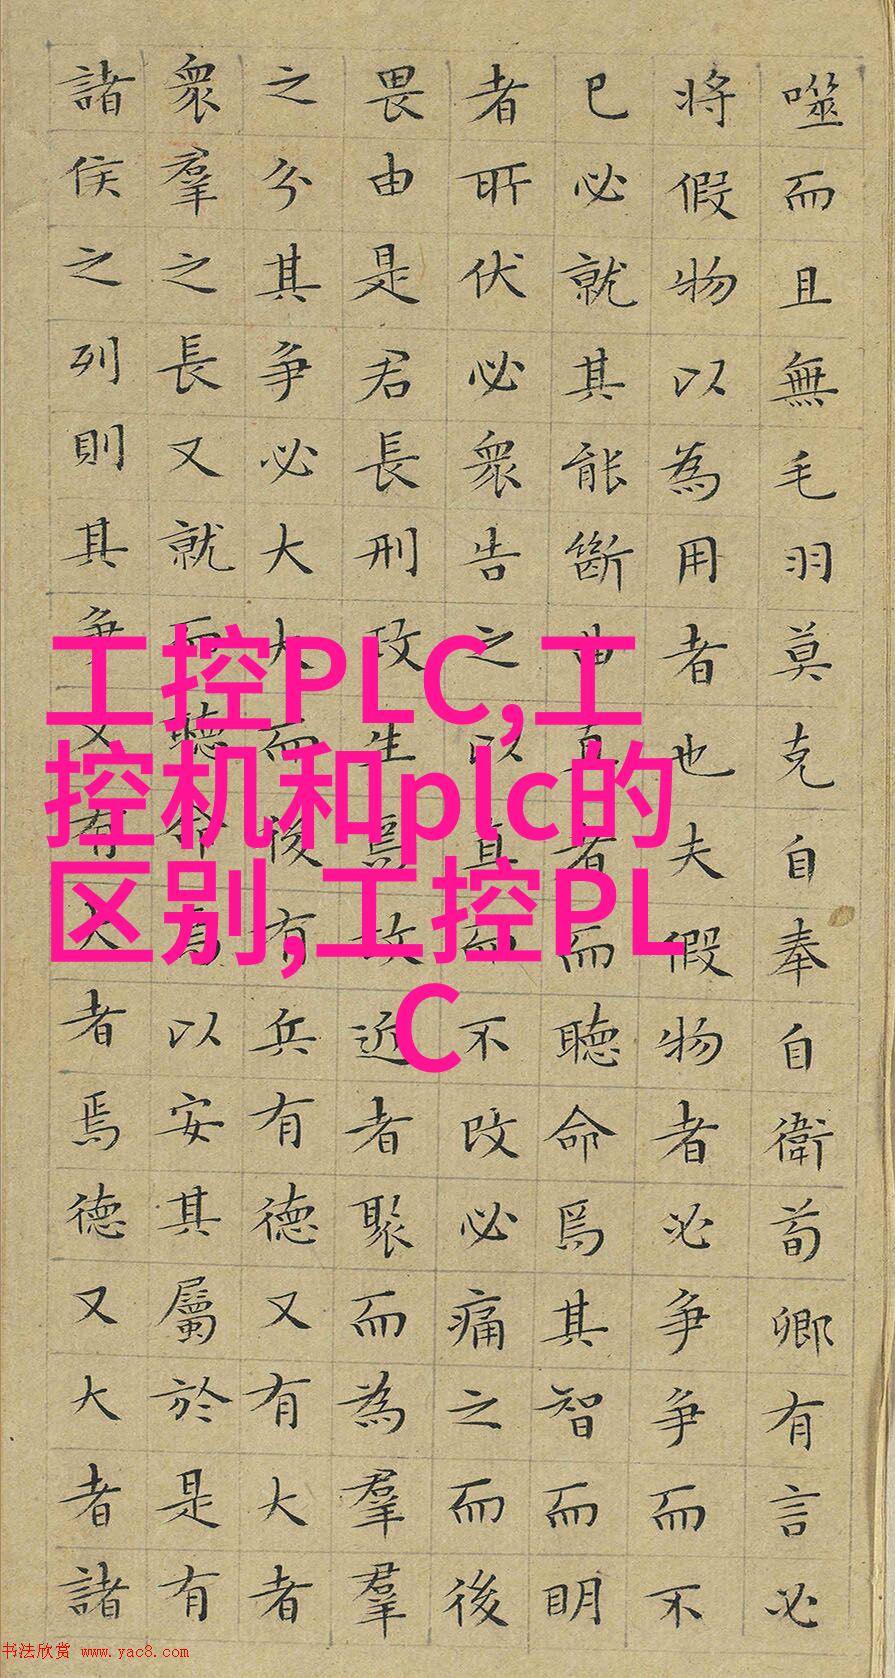 噬而且無毛羽莫克自奉自衛荀卿有言必
将假物以為用者也夫假物者必争争而不
已必就其能斷曲直者而聽命焉其智而明
者所伏必衆告之以直而不改必痛之而後
畏由是君長刑政生焉故近者聚而為羣羣
之分其争必大大而後有兵有德又有大者
衆羣之長又就而聽命焉以安其屬於是有
諸侯之列則其争又有大者焉德又大者諸
工控PLC,工
控机和plc的
区别,工控PL
C
书法欣赏 www.yac8.com